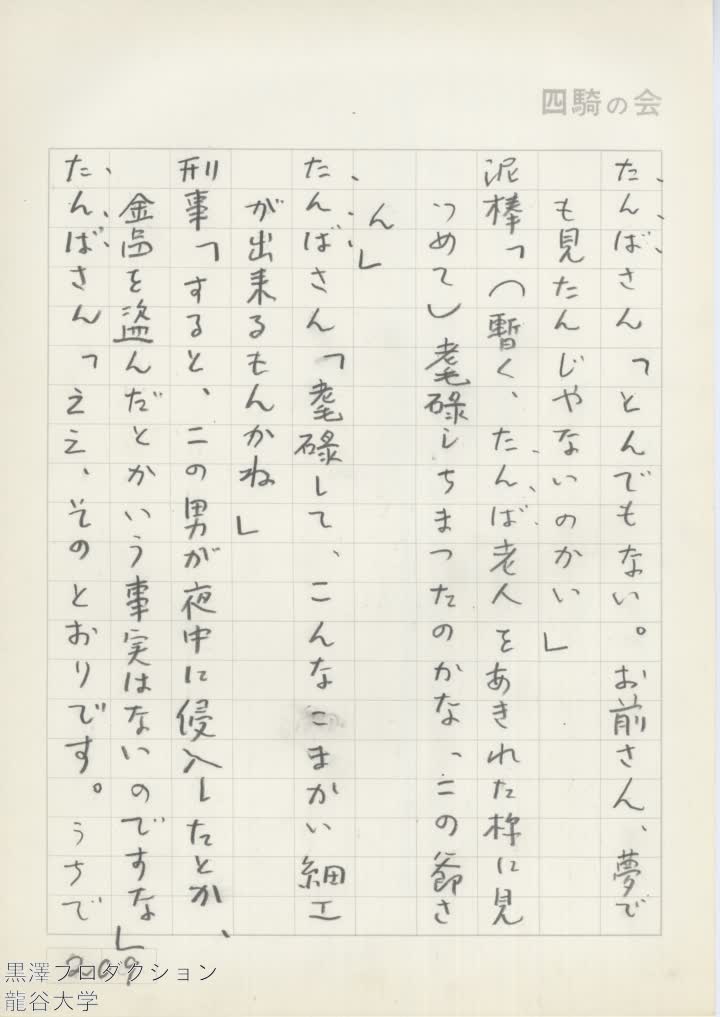 四騎の会
たんばさん「とんでもない。お前さん、夢で
も見たんじやないのかい」
泥棒「(暫く、たんば老人をあきれた様に見
つめて)耄碌しちまつたのかな、この爺さ
ん」
たんばさん「耄碌して、こんなこまかい細工
が出来るもんかね」
刑事「すると、この男が夜中に侵入したとか、
金品を盗んだとかいう事実はないのですな」
たんばさん「ええ、そのとおりです。うちで
209
黒澤プロダクション
龍谷大学